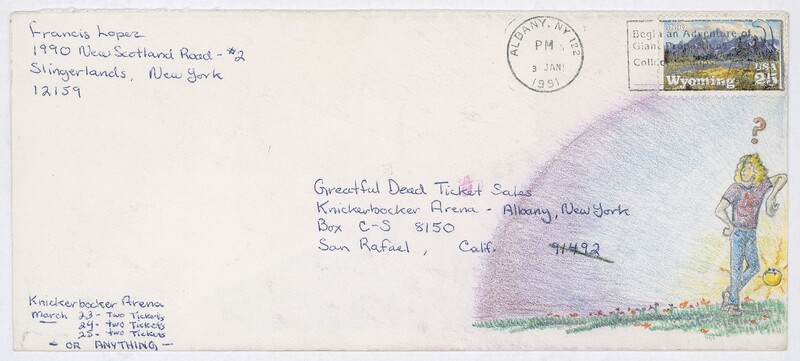 Francis Lopez
1990 New Scotland Road - #2
Slingerlands, New York
12159
ALBANY, NY 122
PM
3 JAN
1991
Begin an Adventure of
Giant Proportions
Wyoming
USA
25
?
Greatful Dead Ticket Sales
Knickerbocker Arena - Albany, New York
Box C-S 8150
San Rafael, Calif. 91492
Knickerbocker Arena
March 23 - Two Tickets
24 - two Tickets
25 - two Tickets
- OR ANYTHING -